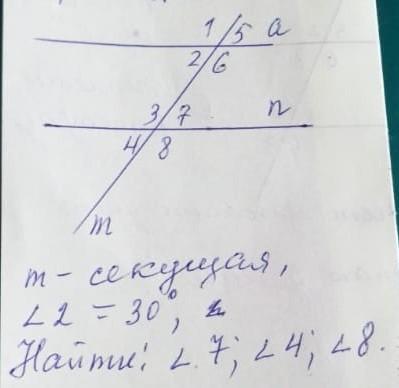 1 5 a
2 6
3 7 n
4 8
m
m - секущая,
∠2 = 30°,
Найти: ∠7; ∠4; ∠8.